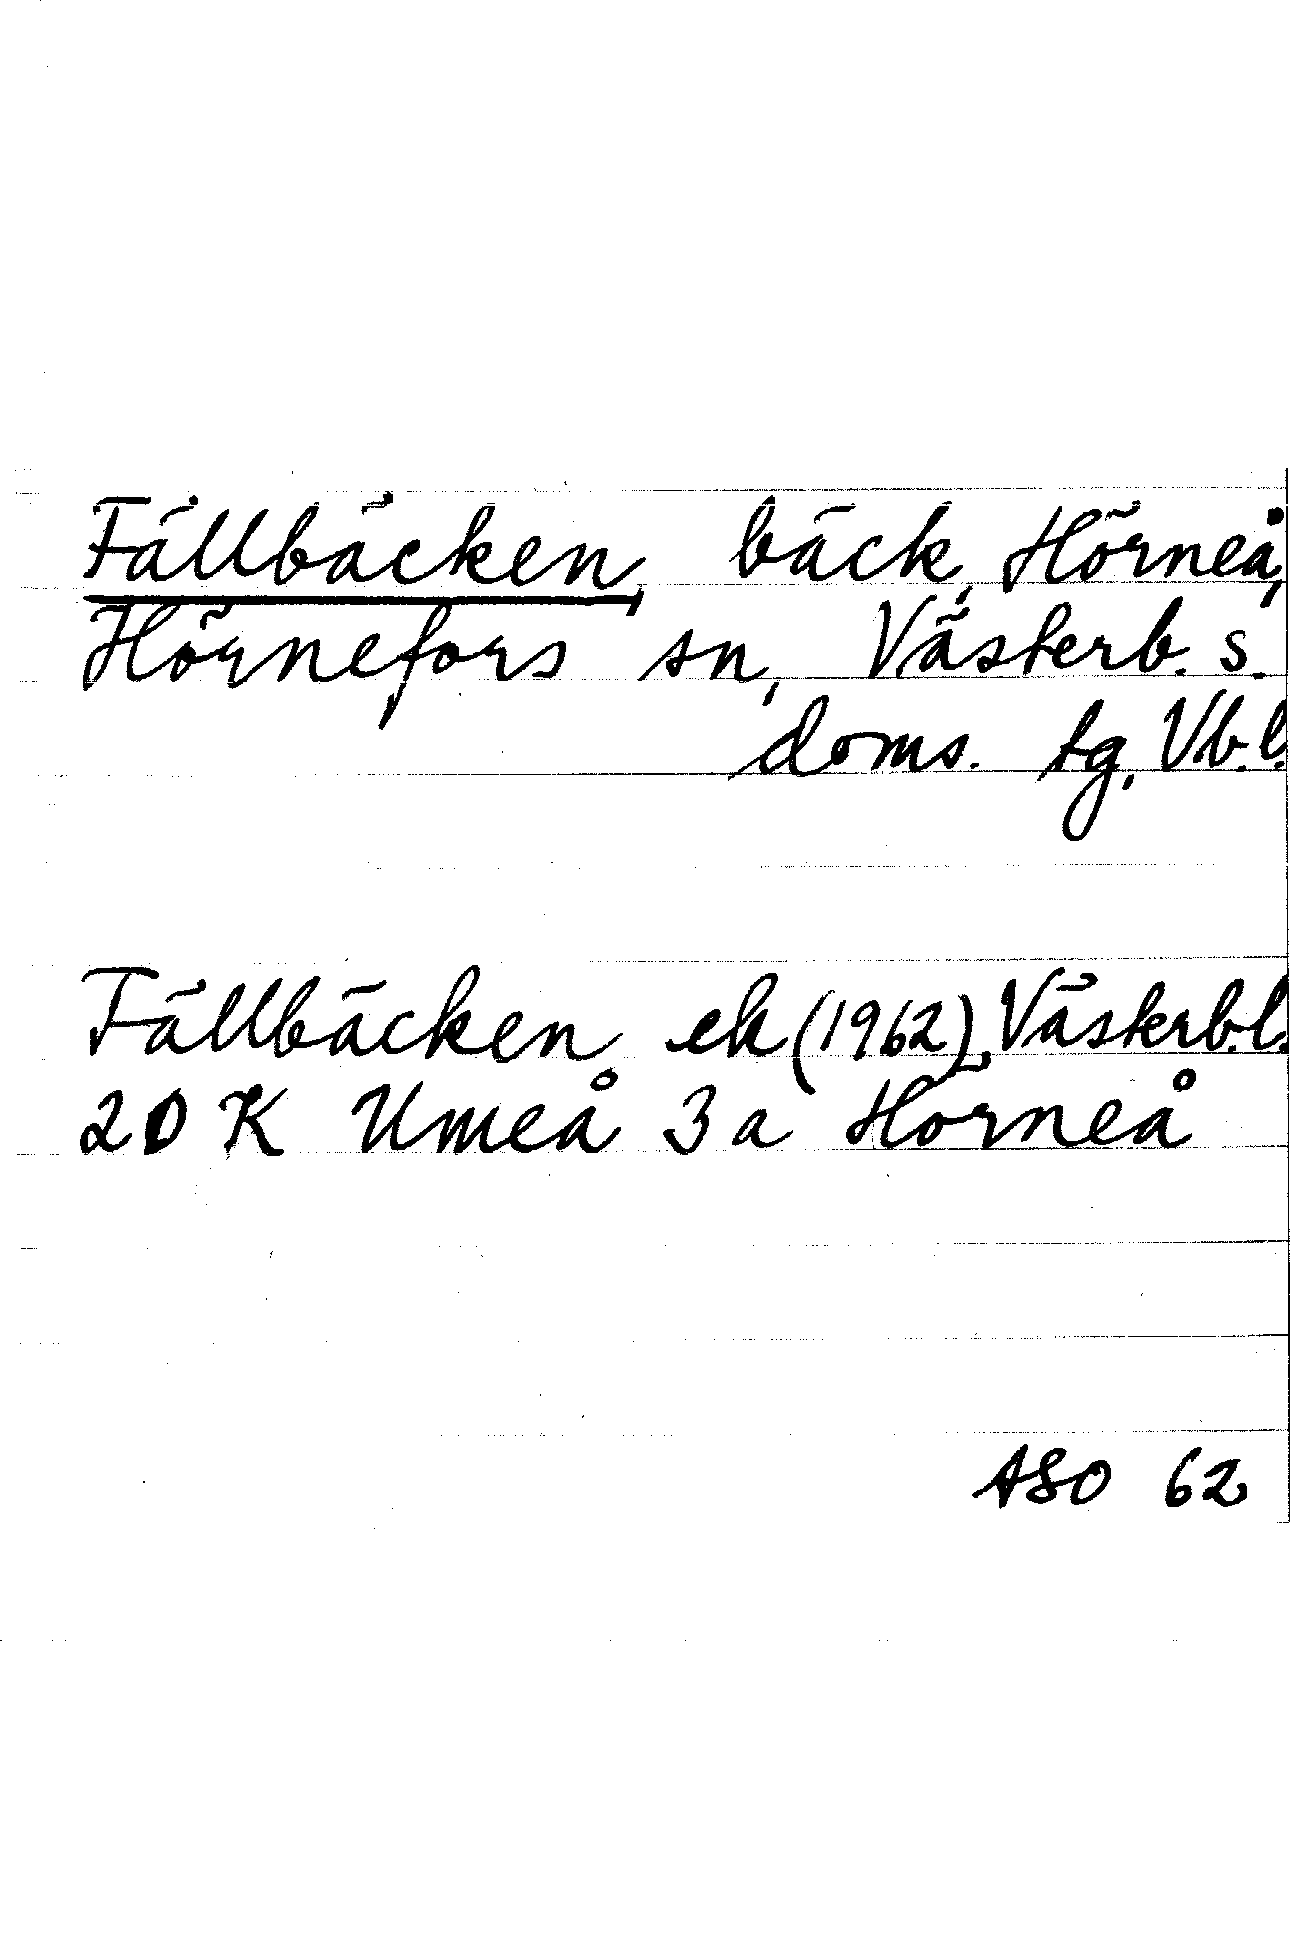 Fällbäcken, bäck, Hörneå,
Hörnefors sn, Västerb. s.
doms. tg, Vb.l.
Fällbäcken ek (1962), Västerb.l.
20 K Umeå 3 a Hörneå
ASO 62